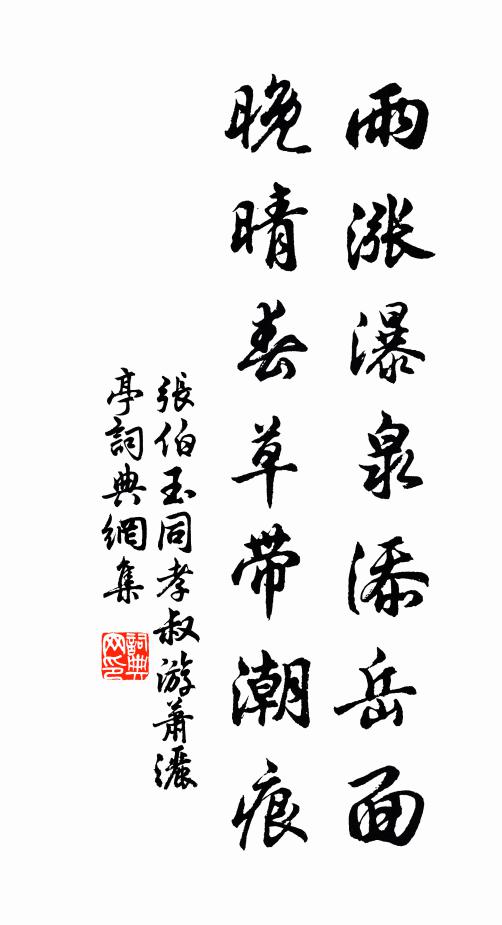 雨漲瀑泉添岳面
晚晴春草帶潮痕
張伯玉同孝叔游蕭灑
亭詞典網集
詞典
网印